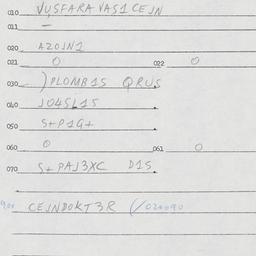 010 VUSFARA VAS1 CEJN
011 —
020 AZOJN1
021 O 022 O
030 )PLOMB1S QRUS
040 JO4SL1S
050 S+P1G+
060 O 061 O
070 S+PAJ3XC D1S
CEJNDOKT3R (/020090